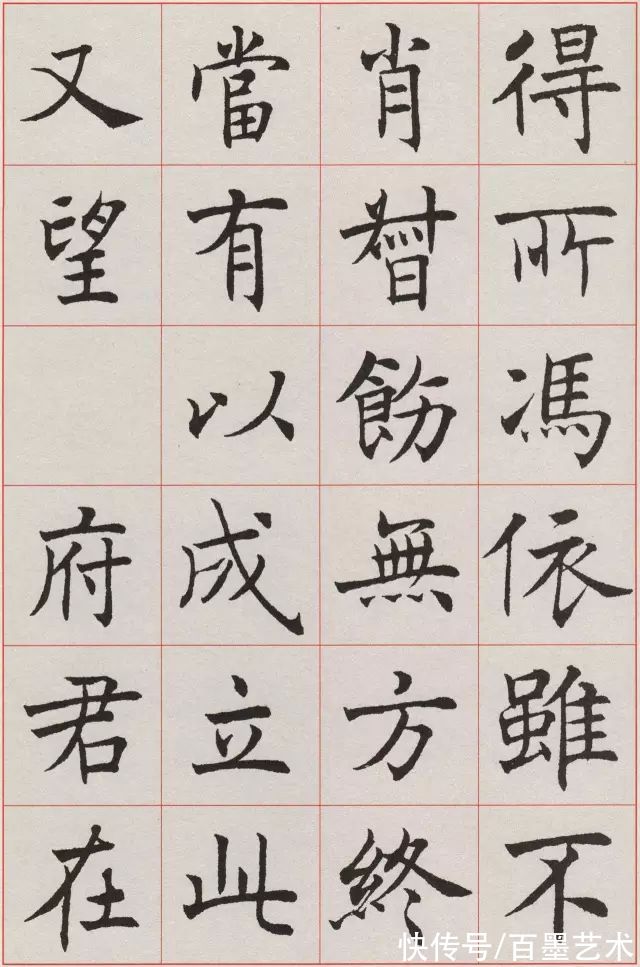 得所馮依雖不
肖督飭無方終
當有以成立此
又望 府君在
快传号/百墨艺术